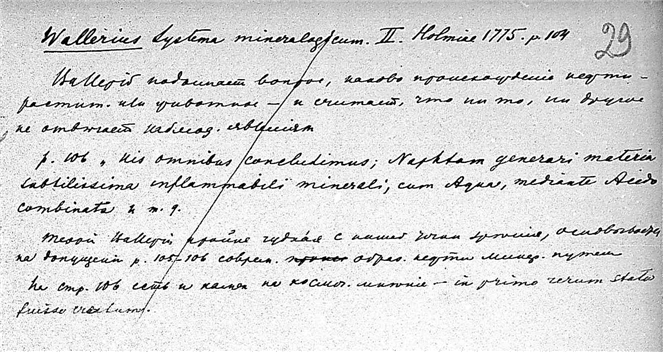 Wallerius Systema mineralogicum. II. Holmiae 1775. p. 104
29
Валлерiй поднимает вопрос, каково происхождение нефти –
растит. или животное – и считает, что ни то, ни другое
не отвечает наблюд. явлениям
p. 106 „ His omnibus concludimus; Naphtam generari materia
subtilissima inflammabili minerali, cum Aqua, mediante Acido
combinata и т. д.
Валлерiй крайне чудная с нашей точки зрения, основывается
на p. 105-106 соврем. образ. нефти минер. путем
На стр. 106 есть и намек на космог. мнение – in primo rerum statu
fuisse creatum.